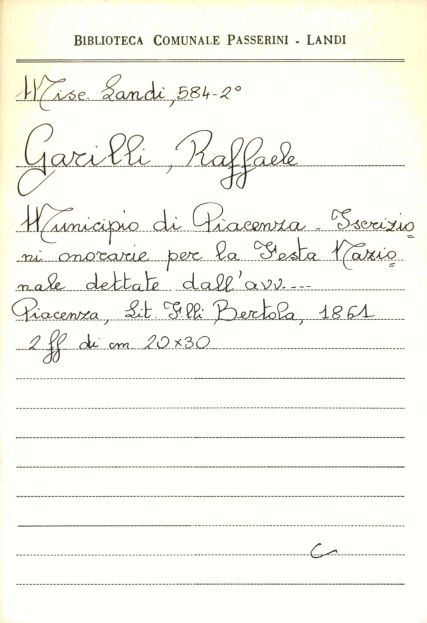 BIBLIOTECA COMUNALE PASSERINI - LANDI
Misc. Landi, 584-2°
Garilli, Raffaele
Municipio di Piacenza - Iscrizio=
ni onorarie per la Festa Nazio=
nale dettate dall'avv. ...
Piacenza, Lit. F.lli Bertola, 1861
2 ff di cm 20x30
C